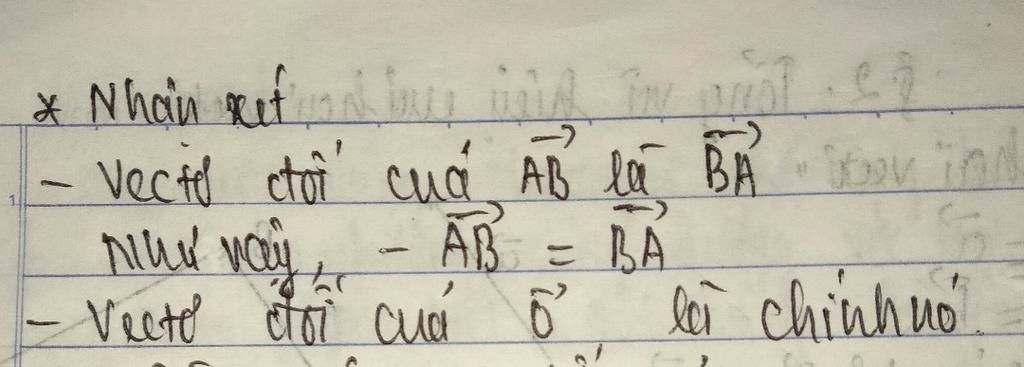 * Nhận xét
- Vectơ đối của \(\overrightarrow{AB}\) là \(\overrightarrow{BA}\)
Như vậy, - \(\overrightarrow{AB}\) = \(\overrightarrow{BA}\)
- Vectơ đối của \(\vec{0}\) là chính nó.